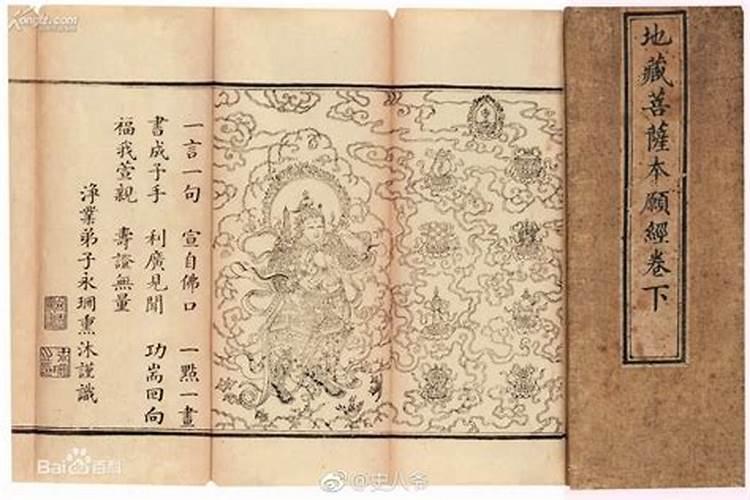 Kongfz.com
地藏菩薩本願經卷下
一言一句 宣自佛口 一點一畫
書成予手 利廣見聞 功耑回向
福我萱親 壽證無量
淨業弟子永珊熏沐謹識
Bai百科
@史人爷